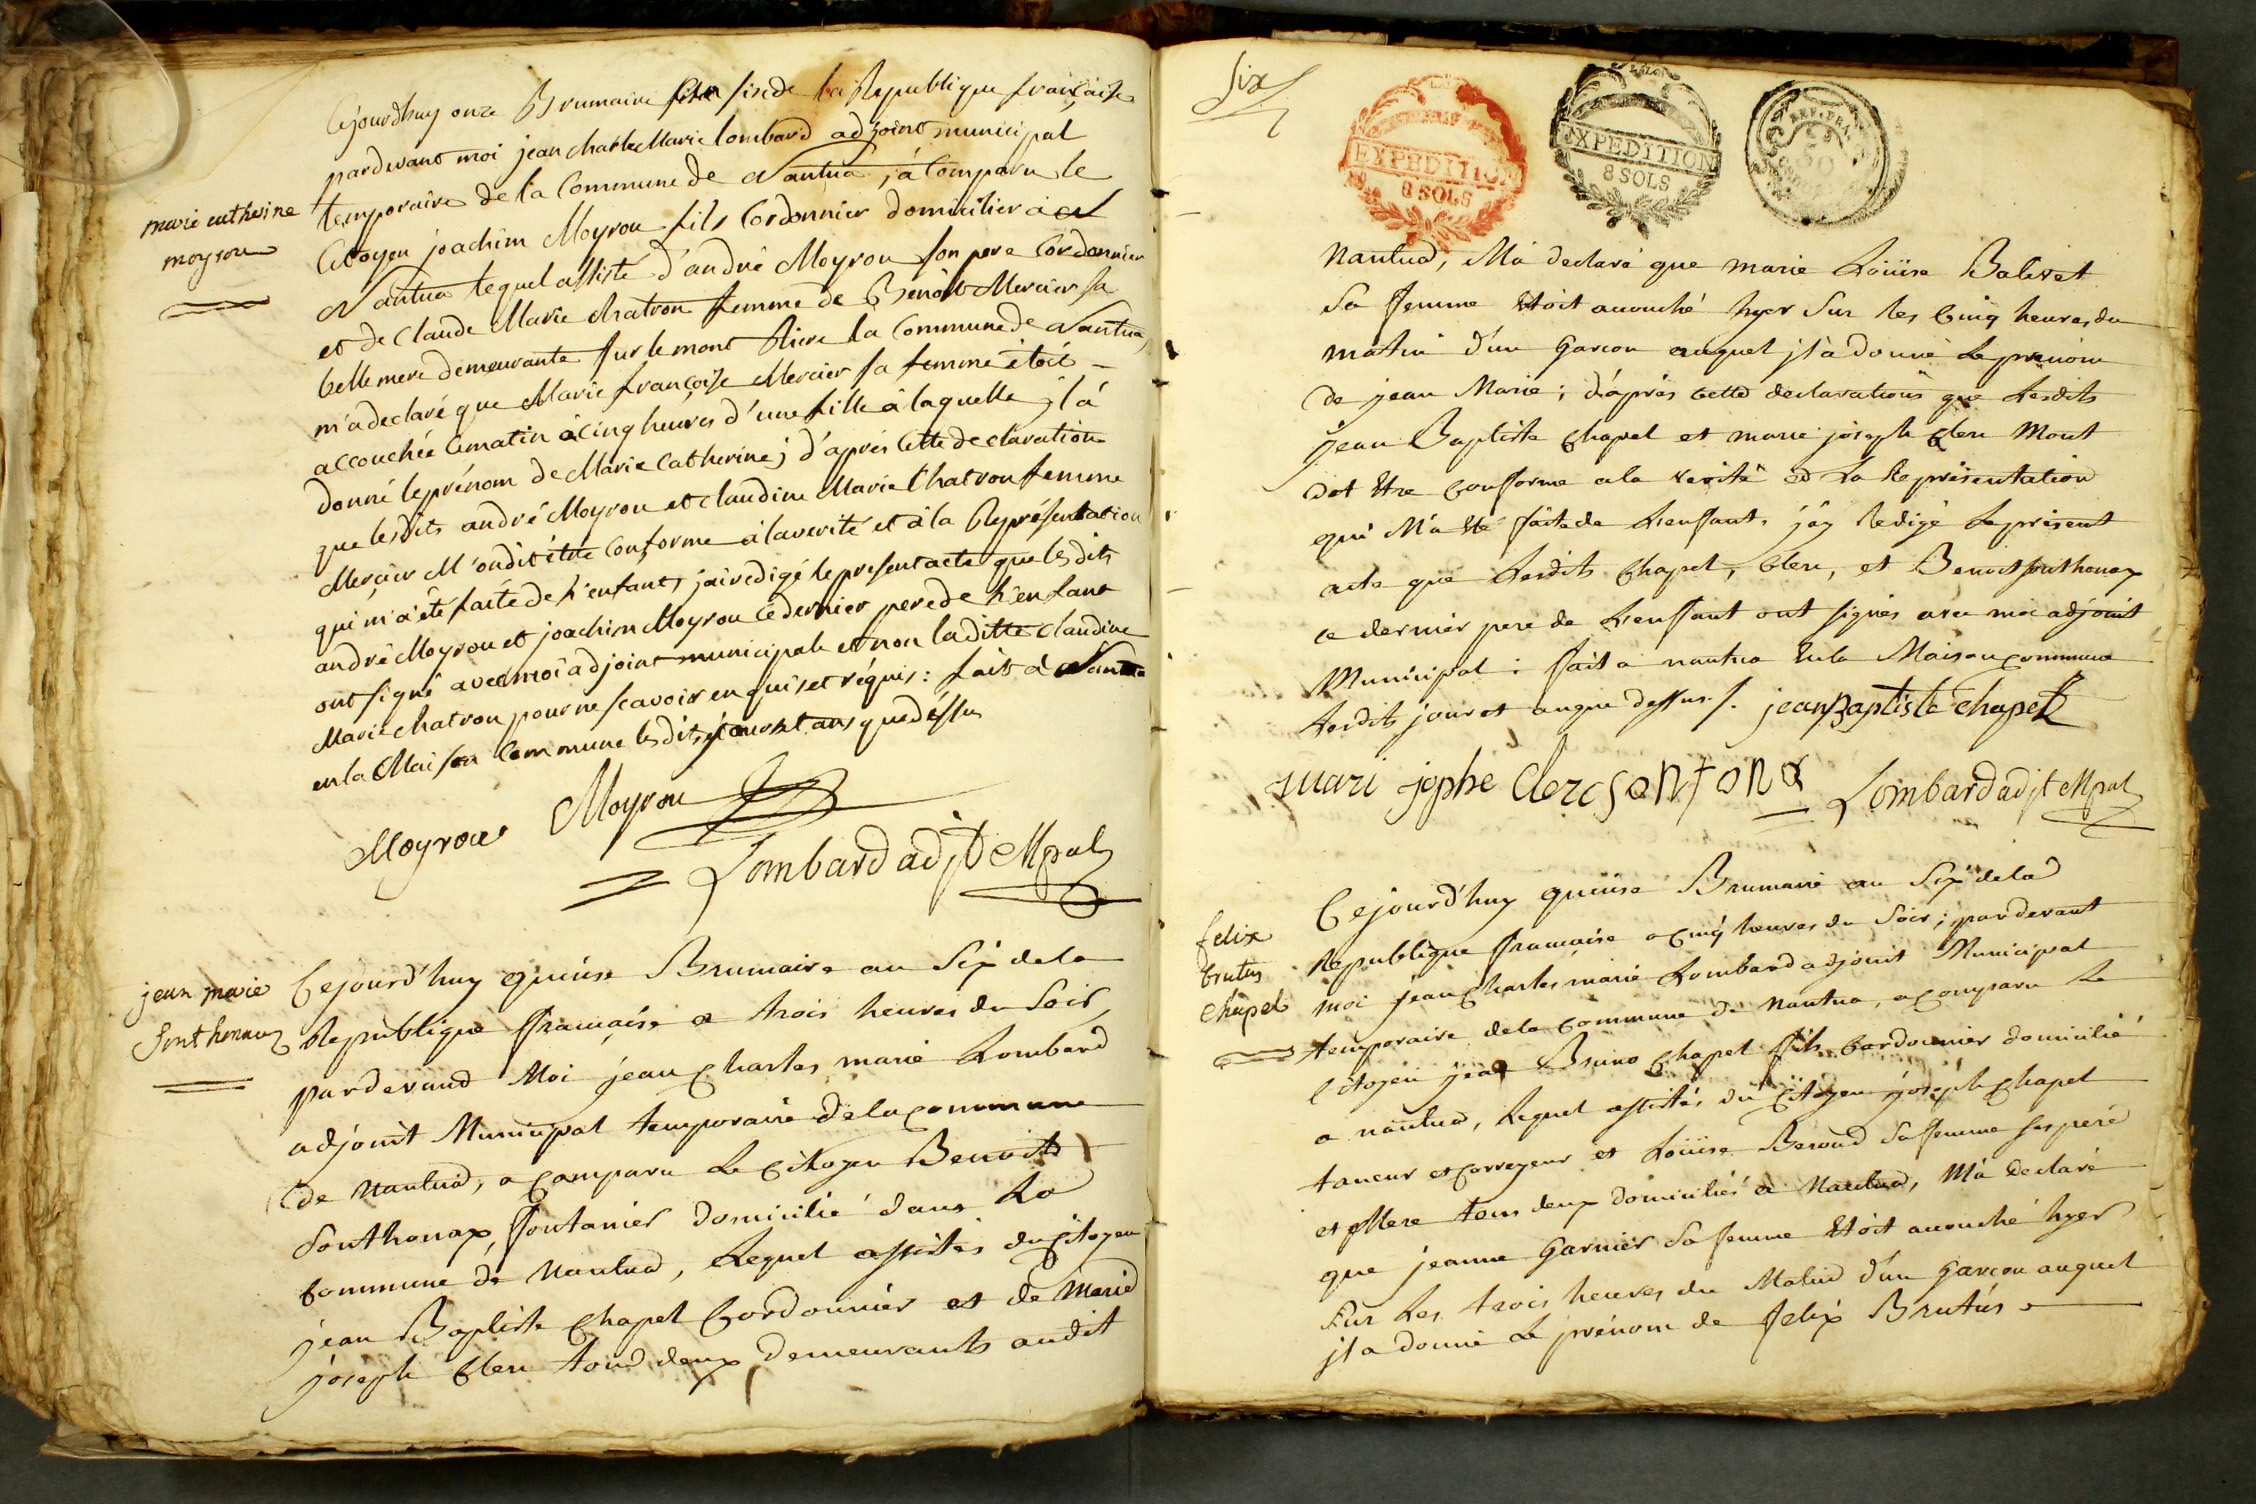 Cejourdhuy onze Brumaire six de la Republique française
pardevant moi jean charle Marie lombard adjoint municipal
temporaire de la Commune de Nantua, à Comparu le
Citoyen joachim Moyrou fils Cordonnier domicilier à
Nantua lequel assisté d'andré Moyrou son pere Cordonnier
et de Claude Marie Chatron femme de Benoit Mercier sa
belle mere demeurante sur le mont Riere la Commune de Nantua,
m'a declaré que Marie françoise Mercier sa femme étoit
accouchée cematin à cinq heures d'une fille à laquelle jl à
donné le prénom de Marie Catherine; d'après Cette declaration
que lesdits andré Moyrou et claudine Marie Chatron femme
Mercier M'ondit être Conforme à la verité et à la Représentation
qui m'a été faite de l'enfant, jai redigé le present acte que lesdits
andré Moyrou et joachim Moyrou ce dernier pere de l'enfant
ont signé avec moi adjoint municipale et non laditte claudine
Marie chatron pour ne scavoir enquis et réquis: fait à Nantua
en la Maison Commune lesdits jour et ans que dessus
marie catherine
moyrou
Moyrou Moyrou
Lombard adjt Mpal
jean marie
sonthonax
Cejourd'huy quinse Brumaire an Six de la
Republique française a trois heures du Soir,
pardevand Moi jean Charles marie Lombard
adjoint Municipal temporaire de la commune
de Nantua, a comparu Le Citoyen Benoit
Sonthonax, fontanier domicilié dans La
Commune de Nantua, Lequel assistés du citoyen
jean Baptiste Chapel Cordonnier et de Marie
joseph Clerc tous deux demeurants audit
six
EXPEDITION
8 SOLS
EXPEDITION
8 SOLS
REP. FRA.
50
Nantua, M'à declaré que marie Loüise Balivet
Sa femme Etoit acouché hyer Sur les Cinq heures du
matin d'un Garçon auquel jl a donné Le prenom
de jean Marie; d'après cette declarations que Lesdits
jean Baptiste Chapel et marie joseph Clerc Mont
dit Etre Conforme a la verité et La Représentation
qui M'a été faite de L'enfant, j'ay Redigé Le présent
acte que Lesdits Chapel, Clerc, et Benoit sonthonax
ce dernier pere de L'enfant ont signés avec moi adjoint
Municipal: fait a nantua En la Maison commune
Lesdits jour et an que dessus /. jean Baptiste Chapel
mari jophe Clerc sontona Lombard adjt Mpal
felix
brutus
chapel
Cejourd'huy quinse Brumaire an Six de la
Republique francaise a cinq heures du Soir; pardevant
moi jean Charles marie Lombard adjoint Municipal
temporaire de la Commune de Nantua, a comparu Le
Citoyen jean Bruno Chapel fils Cordonnier domicilié
a nantua, Lequel assistés du Citoyen joseph Chapel
taneur et corroyeur et Loüise Beroud Sa femme ses pere
et Mere tous deux domiciliés a Nantua, M'à declaré
que jeanne Garnier Sa femme Etoit acouché hyer
Sur Les trois heures du Matin d'un Garçon auquel
jl a donné Le prénom de felix Brutus